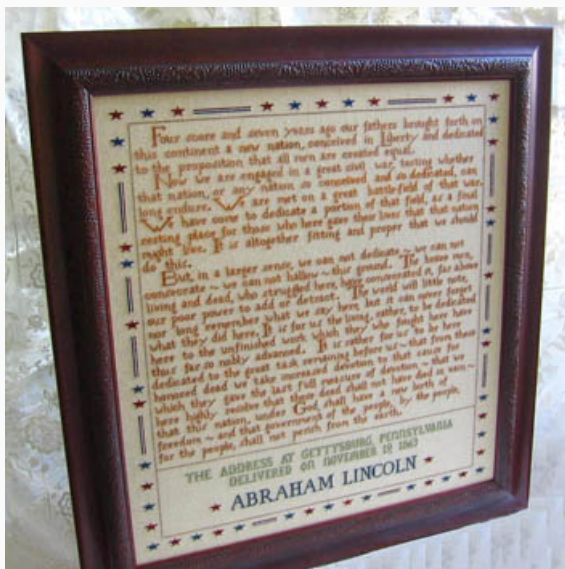 Four score and seven years ago our fathers brought forth on
this continent a new nation, conceived in Liberty and dedicated
to the proposition that all men are created equal.
Now we are engaged in a great civil war, testing whether
that nation, or any nation so conceived and so dedicated, can
long endure. We are met on a great battle-field of that war.
We have come to dedicate a portion of that field, as a final
resting place for those who here gave their lives that that nation
might live. It is altogether fitting and proper that we should
do this.
But, in a larger sense, we can not dedicate ~ we can not
consecrate ~ we can not hallow ~ this ground. The brave men,
living and dead, who struggled here, have consecrated it, far above
our poor power to add or detract. The world will little note,
nor long remember what we say here, but it can never forget
what they did here. It is for us the living, rather, to be dedicated
here to the unfinished work which they who fought here have
thus far so nobly advanced. It is rather for us to be here
dedicated to the great task remaining before us ~ that from these
honored dead we take increased devotion to that cause for
which they gave the last full measure of devotion ~ that we
here highly resolve that these dead shall not have died in vain ~
that this nation, under God, shall have a new birth of
freedom ~ and that government of the people, by the people,
for the people, shall not perish from the earth.
THE ADDRESS AT GETTYSBURG, PENNSYLVANIA
DELIVERED ON NOVEMBER 19 1863
ABRAHAM LINCOLN